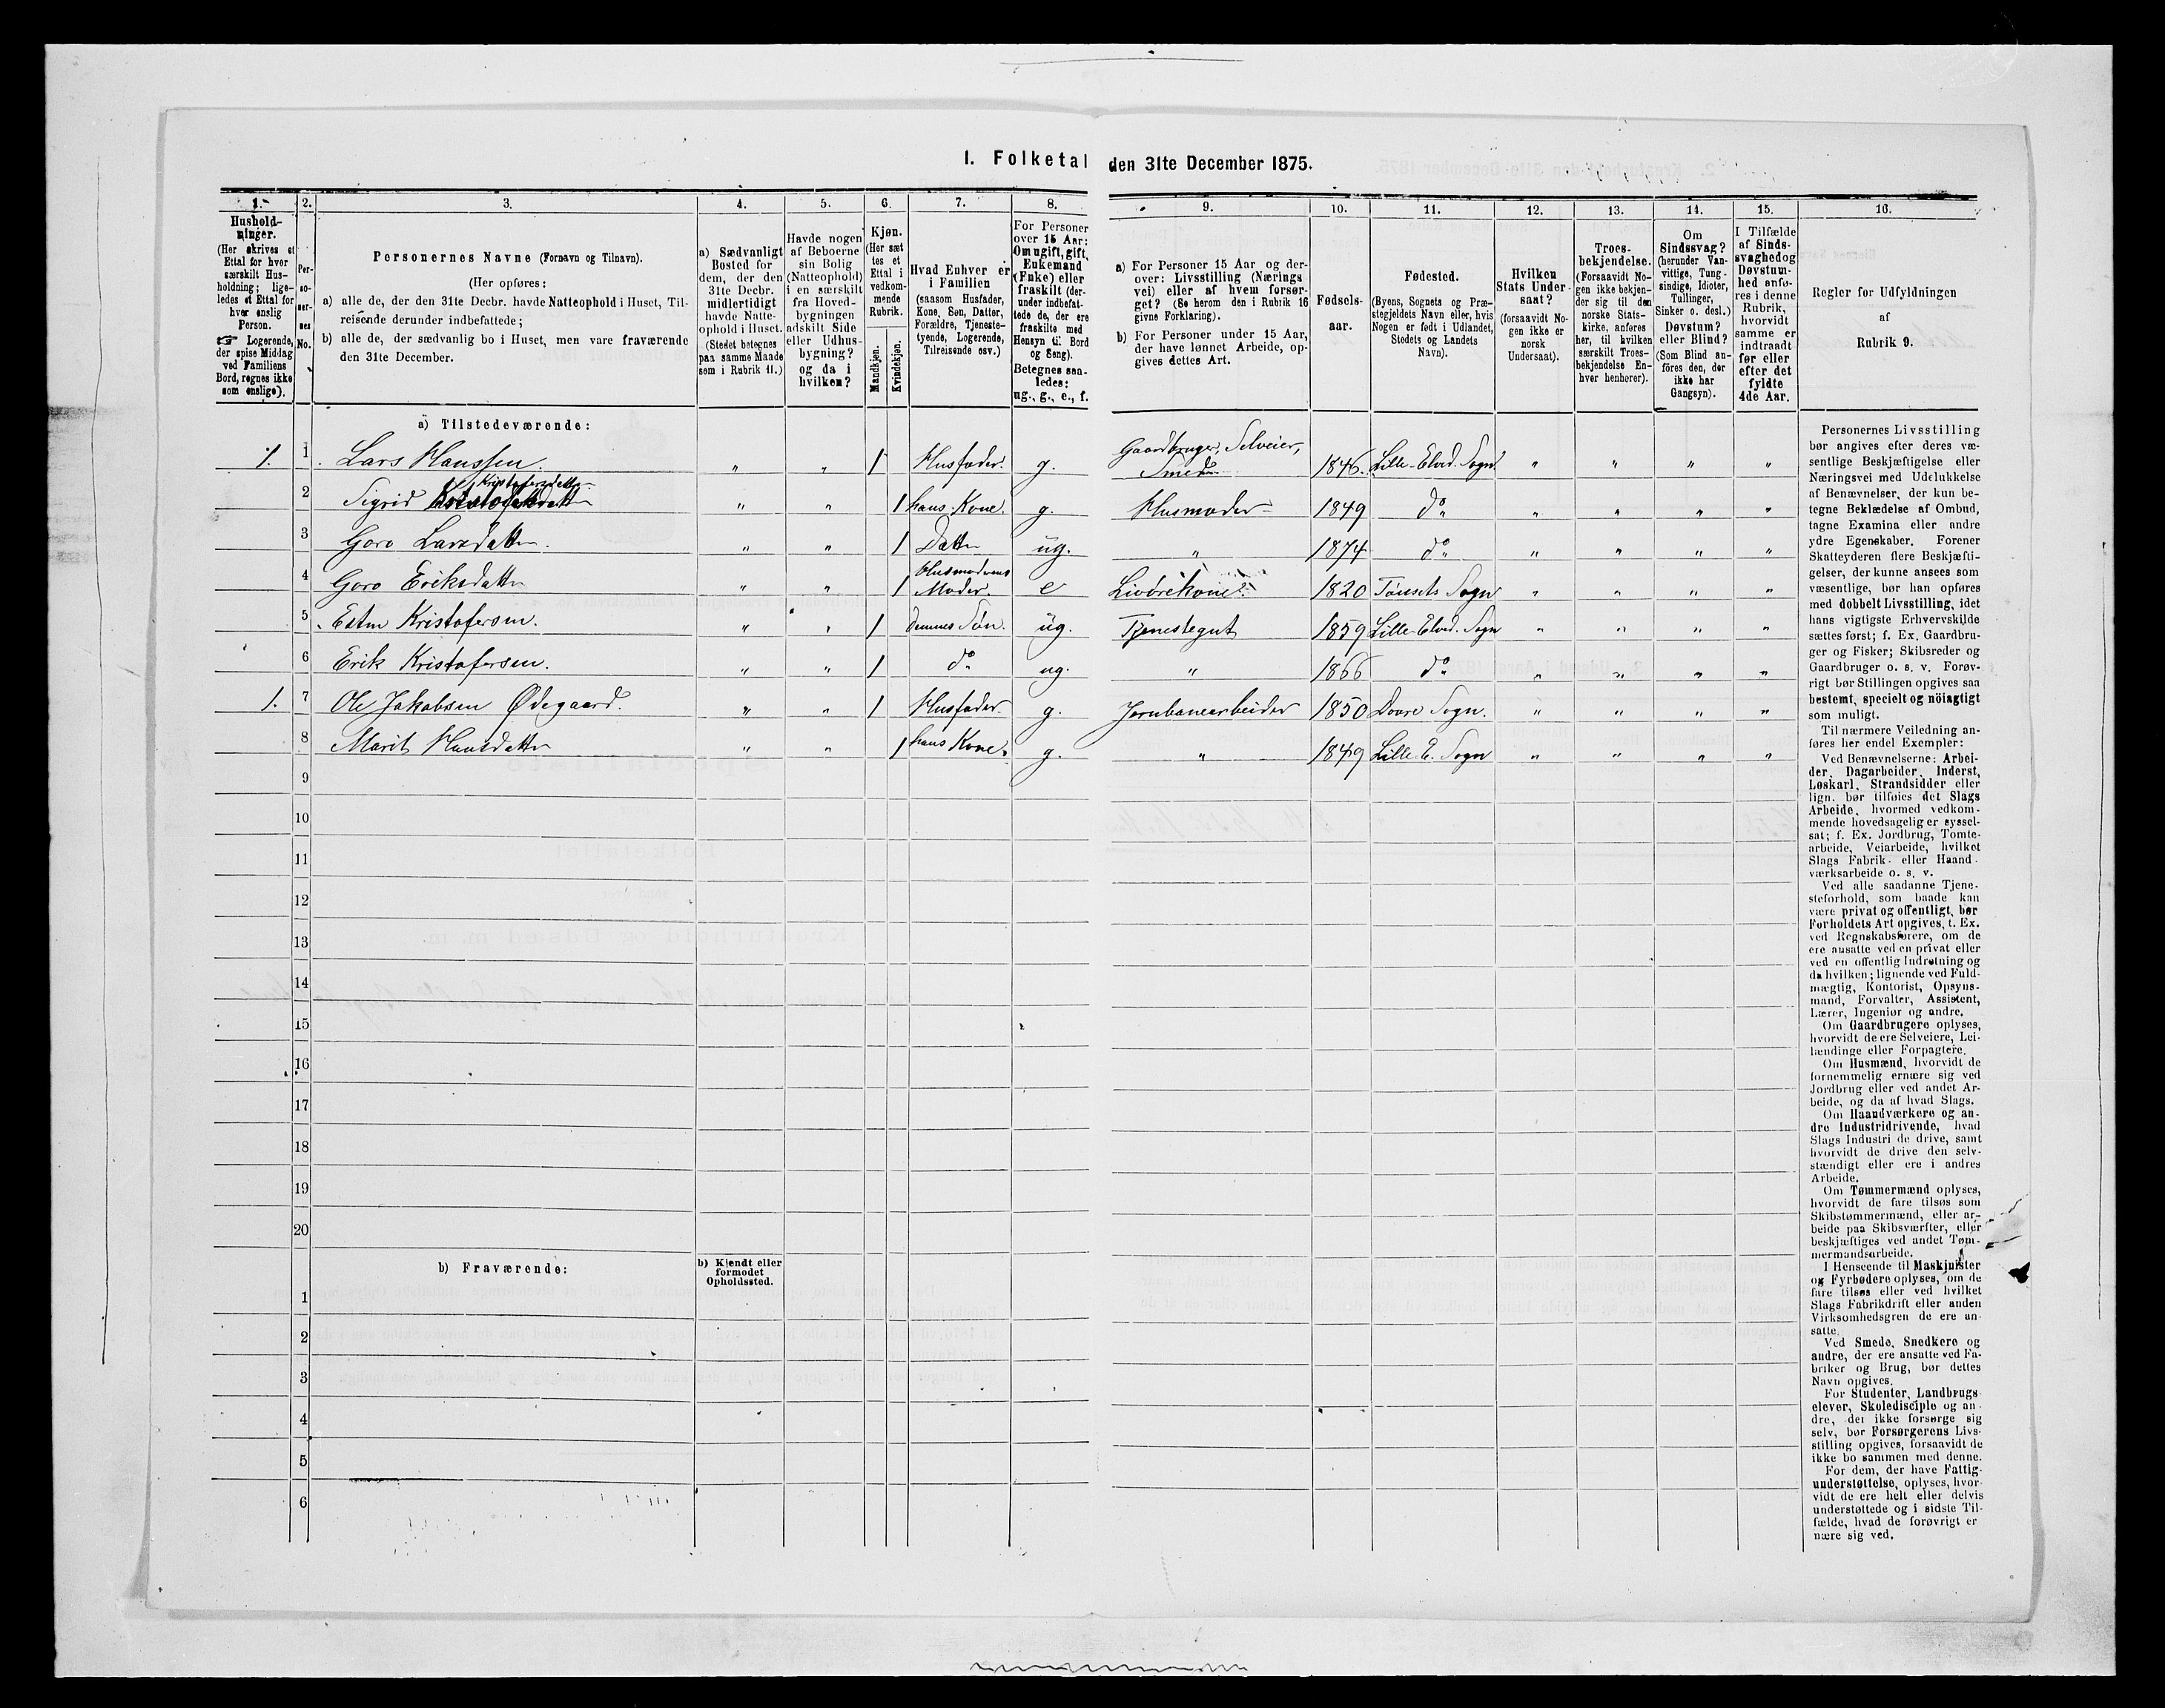 I. Folketal den 31te December 1875.
1.
Hushold-
ninger.
(Her skrives et
Ettal for hver
særskilt Hus-
holdning; lige-
ledes et Ettal for
hver enslig
Person.
☞ Logerende,
der spise Middag
ved Familiens
Bord, regnes ikke
som enslige).
2.
Per-
so-
ner-
nes
No.
3.
Personernes Navne (Fornavn og Tilnavn).
(Her opføres:
a) alle de, der den 31te Decbr. havde Natteophold i Huset, Til-
reisende derunder indbefattede;
b) alle de, der sædvanlig bo i Huset, men vare fraværende
den 31te December.
4.
a) Sædvanligt
Bosted for
dem, der den
31te Decbr.
midlertidigt
havde Natte-
ophold i Huset.
(Stedet betegnes
paa samme Maade
som i Rubrik 11.)
5.
Havde nogen
af Beboerne
sin Bolig
(Natteophold)
i en særskilt
fra Hoved-
bygningen
adskilt Side
eller Udhus-
bygning?
og da i
hvilken?
6.
Kjøn.
(Her sæt
tes et
Ettal i
vedkom-
mende
Rubrik.
Mandkjøn.
Kvindekjøn.
7.
Hvad Enhver er
i Familien
(saasom Husfader,
Kone, Søn, Datter,
Forældre, Tjeneste-
tyende, Logerende,
Tilreisende osv.)
8.
For Personer
over 15 Aar:
Om ugift, gift,
Enkemand
(Enke) eller
fraskilt (der-
under indbefat-
tede de, der ere
fraskilte med
Hensyn til Bord
og Seng).
Betegnes saa-
ledes:
ug., g., e., f.
9.
a) For Personer 15 Aar og der-
over: Livsstilling (Nærings
vei) eller af hvem forsør-
get? (Se herom den i Rubrik 16
givne Forklaring).
b) For Personer under 15 Aar,
der have lønnet Arbeide, op-
gives dettes Art.
10.
Fødsels-
aar.
11.
Fødested.
(Byens, Sognets og Præ-
stegjeldets Navn eller, hvis
Nogen er født i Udlandet,
Stedets og Landets
Navn).
12.
Hvilken
Stats Under-
saat?
(forsaavidt No-
gen ikke er
norsk
Undersaat).
13.
Troes-
bekjendelse.
(Forsaavidt No-
gen ikke bekjen-
der sig til den
norske Stats-
kirke, anføres
her, til hvilken
særskilt Troes-
bekjendelse En-
hver henhører).
14.
Om
Sindssvag?
(herunder Van-
vittige, Tung-
sindige, Idioter,
Tullinger,
Sinker o. desl.)
Døvstum?
eller Blind?
(Som Blind an-
føres den, der
ikke har
Gangsyn).
15.
I Tilfælde
af Sinds-
svaghed og
Døvstum-
hed anfø-
res i denne
Rubrik,
hvorvidt
samme er
indtraadt
før eller
efter det
fyldte
4de Aar.
16.
Regler for Udfyldningen
af
Rubrik 9.
a) Tilstedeværende:
1. 1 Lars Hanssen. " " 1 Husfader. g. Gaardbruger, Selveier, Smed 1846. Lille-Elvd. Sogn. " " " "
2 Sigrid Kristofersdatter " " 1 hans Kone. g. Husmoder 1849 do " " " "
3 Goro Larsdatter. " " 1 Datter ug. " 1874 do " " " "
4 Goro Eriksdatter " " 1 Husmoderens Moder. e Livørekone 1820 Tønsets Sogn " " " "
5 Esten Kristofersen. " " 1 dennes Søn. ug. Tjenestegut 1859 Lille-Elvd. Sogn " " " "
6 Erik Kristofersen. " " 1 do ug. " 1866 do " " " "
1. 7 Ole Jakobsen Ødegaard. " " 1 Husfader. g. Jernbanearbeider 1850 Dovre Sogn. " " " "
8 Marit Hansdatter " " 1 hans Kone. g. " 1849 Lille E. Sogn " " " "
9
10
11
12
13
14
15
16
17
18
19
20
b) Fraværende:
b) Kjendt eller
formodet
Opholdssted.
1
2
3
4
5
6
Personernes Livsstilling
bør angives efter deres væ-
sentlige Beskjæftigelse eller
Næringsvei med Udelukkelse
af Benævnelser, der kun be-
tegne Beklædelse af Ombud,
tagne Examina eller andre
ydre Egenskaber. Forener
Skatteyderen flere Beskjæfti-
gelser, der kunne ansees som
væsentlige, bør han opføres
med dobbelt Livsstilling, idet
hans vigtigste Erhvervskilde
sættes først; f. Ex. Gaardbru-
ger og Fisker; Skibsreder og
Gaardbruger o. s. v. Forøv-
rigt bør Stillingen opgives saa
bestemt, specielt og nöiagtigt
som muligt.
Til nærmere Veiledning an-
føres her endel Exempler:
Ved Benævnelserne: Arbei-
der, Dagarbeider, Inderst,
Løskarl, Strandsidder eller
lign. bør tilføies det Slags
Arbeide, hvormed vedkom-
mende hovedsagelig er syssel-
sat; f. Ex. Jordbrug, Tomte-
arbeide, Veiarbeide, hvilket
Slags Fabrik- eller Haand-
værksarbeide o. s. v.
Ved alle saadanne Tjene-
steforhold, som baade kan
være privat og offentligt, bør
Forholdets Art opgives, t. Ex.
ved Regnskabsførere, om de
ere ansatte ved en privat eller
ved en offentlig Indretning og
da hvilken; lignende ved Fuld-
mægtig, Kontorist, Opsyns-
mand, Forvalter, Assistent,
Lærer, Ingeniør og andre.
Om Gaardbrugere oplyses,
hvorvidt de ere Selveiere, Lei-
lændinge eller Forpagtere.
Om Husmænd, hvorvidt de
fornemmelig ernære sig ved
Jordbrug eller ved andet Ar-
beide, og da af hvad Slags.
Om Haandværkere og an-
dre Industridrivende, hvad
Slags Industri de drive, samt
hvorvidt de drive den selv-
stændigt eller ere i andres
Arbeide.
Om Tømmermænd oplyses,
hvorvidt de fare tilsøs som
Skibstømmermænd, eller ar-
beide paa Skibsværfter, eller
beskjæftiges ved andet Tøm-
mermandsarbeide.
I Henseende til Maskinister
og Fyrbødere oplyses, om de
fare tilsøs eller ved hvilket
Slags Fabrikdrift eller anden
Virksomhedsgren de ere an-
satte.
Ved Smede, Snedkere og
andre, der ere ansatte ved Fa-
briker og Brug, bør dettes
Navn opgives.
For Studenter, Landbrugs-
elever, Skoledisciple og an-
dre, der ikke forsørge sig
selv, bør Forsørgerens Livs-
stilling opgives, forsaavidt de
ikke bo sammen med denne.
For dem, der have Fattig-
understøttelse, oplyses, hvor-
vidt de ere helt eller delvis
understøttede og i sidste Til-
fælde, hvad de forøvrigt er
nære sig ved.